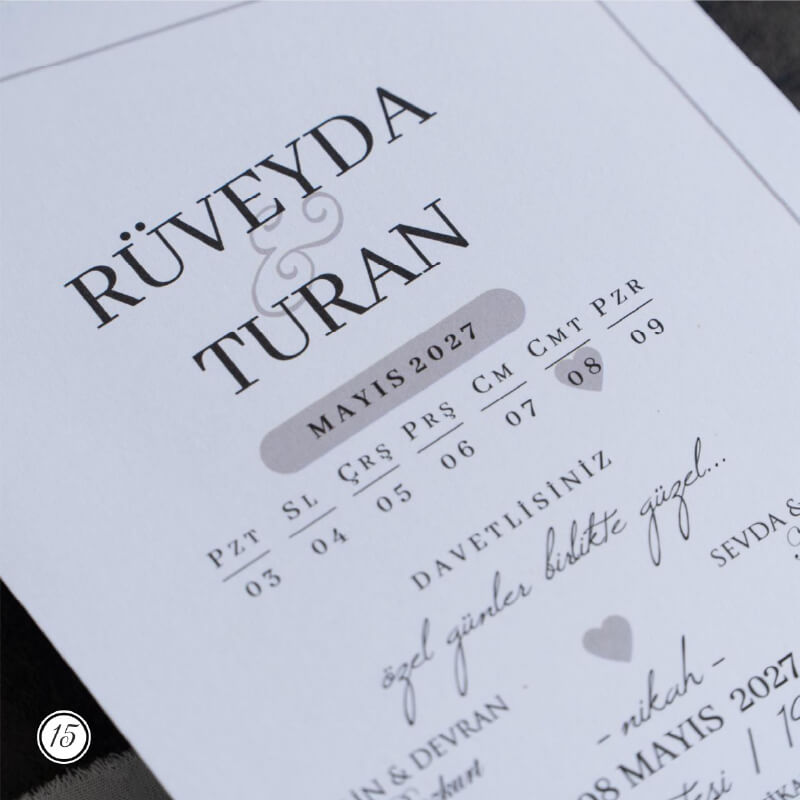 RÜVEYDA
&
TURAN
MAYIS 2027
PZT SL ÇRŞ PRŞ CM CMT PZR
03 04 05 06 07 08 09
DAVETLİSİNİZ
özel günler birlikte güzel...
SEVDA &
& DEVRAN
- nikah -
08 MAYIS 2027
15